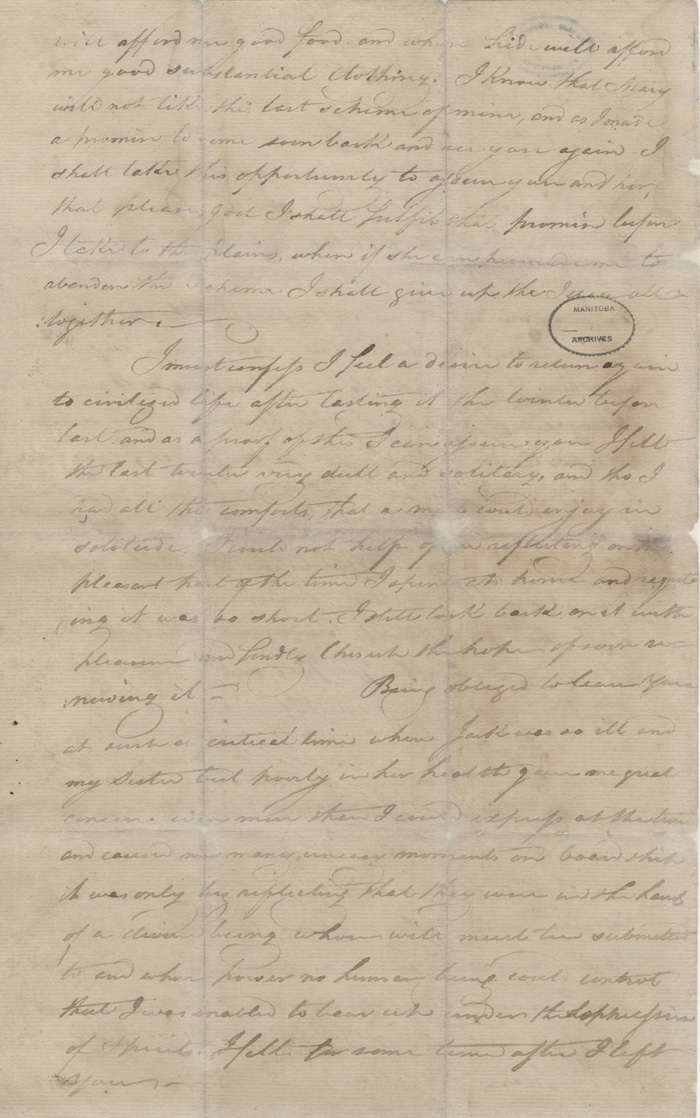 will afford me good food and whose hide will afford
me good substantial Clothing. I know that Mary
will not like this last scheme of mine, and as I made
a promise to come soon back and see you again I
shall take this opportunity to assure you and her,
that please God I shall fulfil that promise before
I take to the plains, when if she can persuade me to
abandon the scheme I shall give up the Idea all
together.
MANITOBA
ARCHIVES
I must confess I feel a desire to return again
to civilized life after tasting it the winter before
last, and as a proof of this I can assure you I felt
the last winter very dull and solitary, and tho I
had all the comforts that a man could enjoy in
solitude, I could not help often reflecting on the
pleasant part of the time I spent at home and regrett
ing it was so short. I still look back on it with
pleasure and fondly Cherish the hope of soon re
newing it – Being obliged to leave you
at such a critical time when Jack was so ill and
my Sister but poorly in her health gave me great
concern even more than I could express at the time
and caused me many uneasy moments on board ship
it was only by reflecting that they were in the hands
of a divine being whose will must be submitted
to and whose power no human being could control
that I was enabled to bear up under the oppression
of Spirits I felt for some time after I left
you –